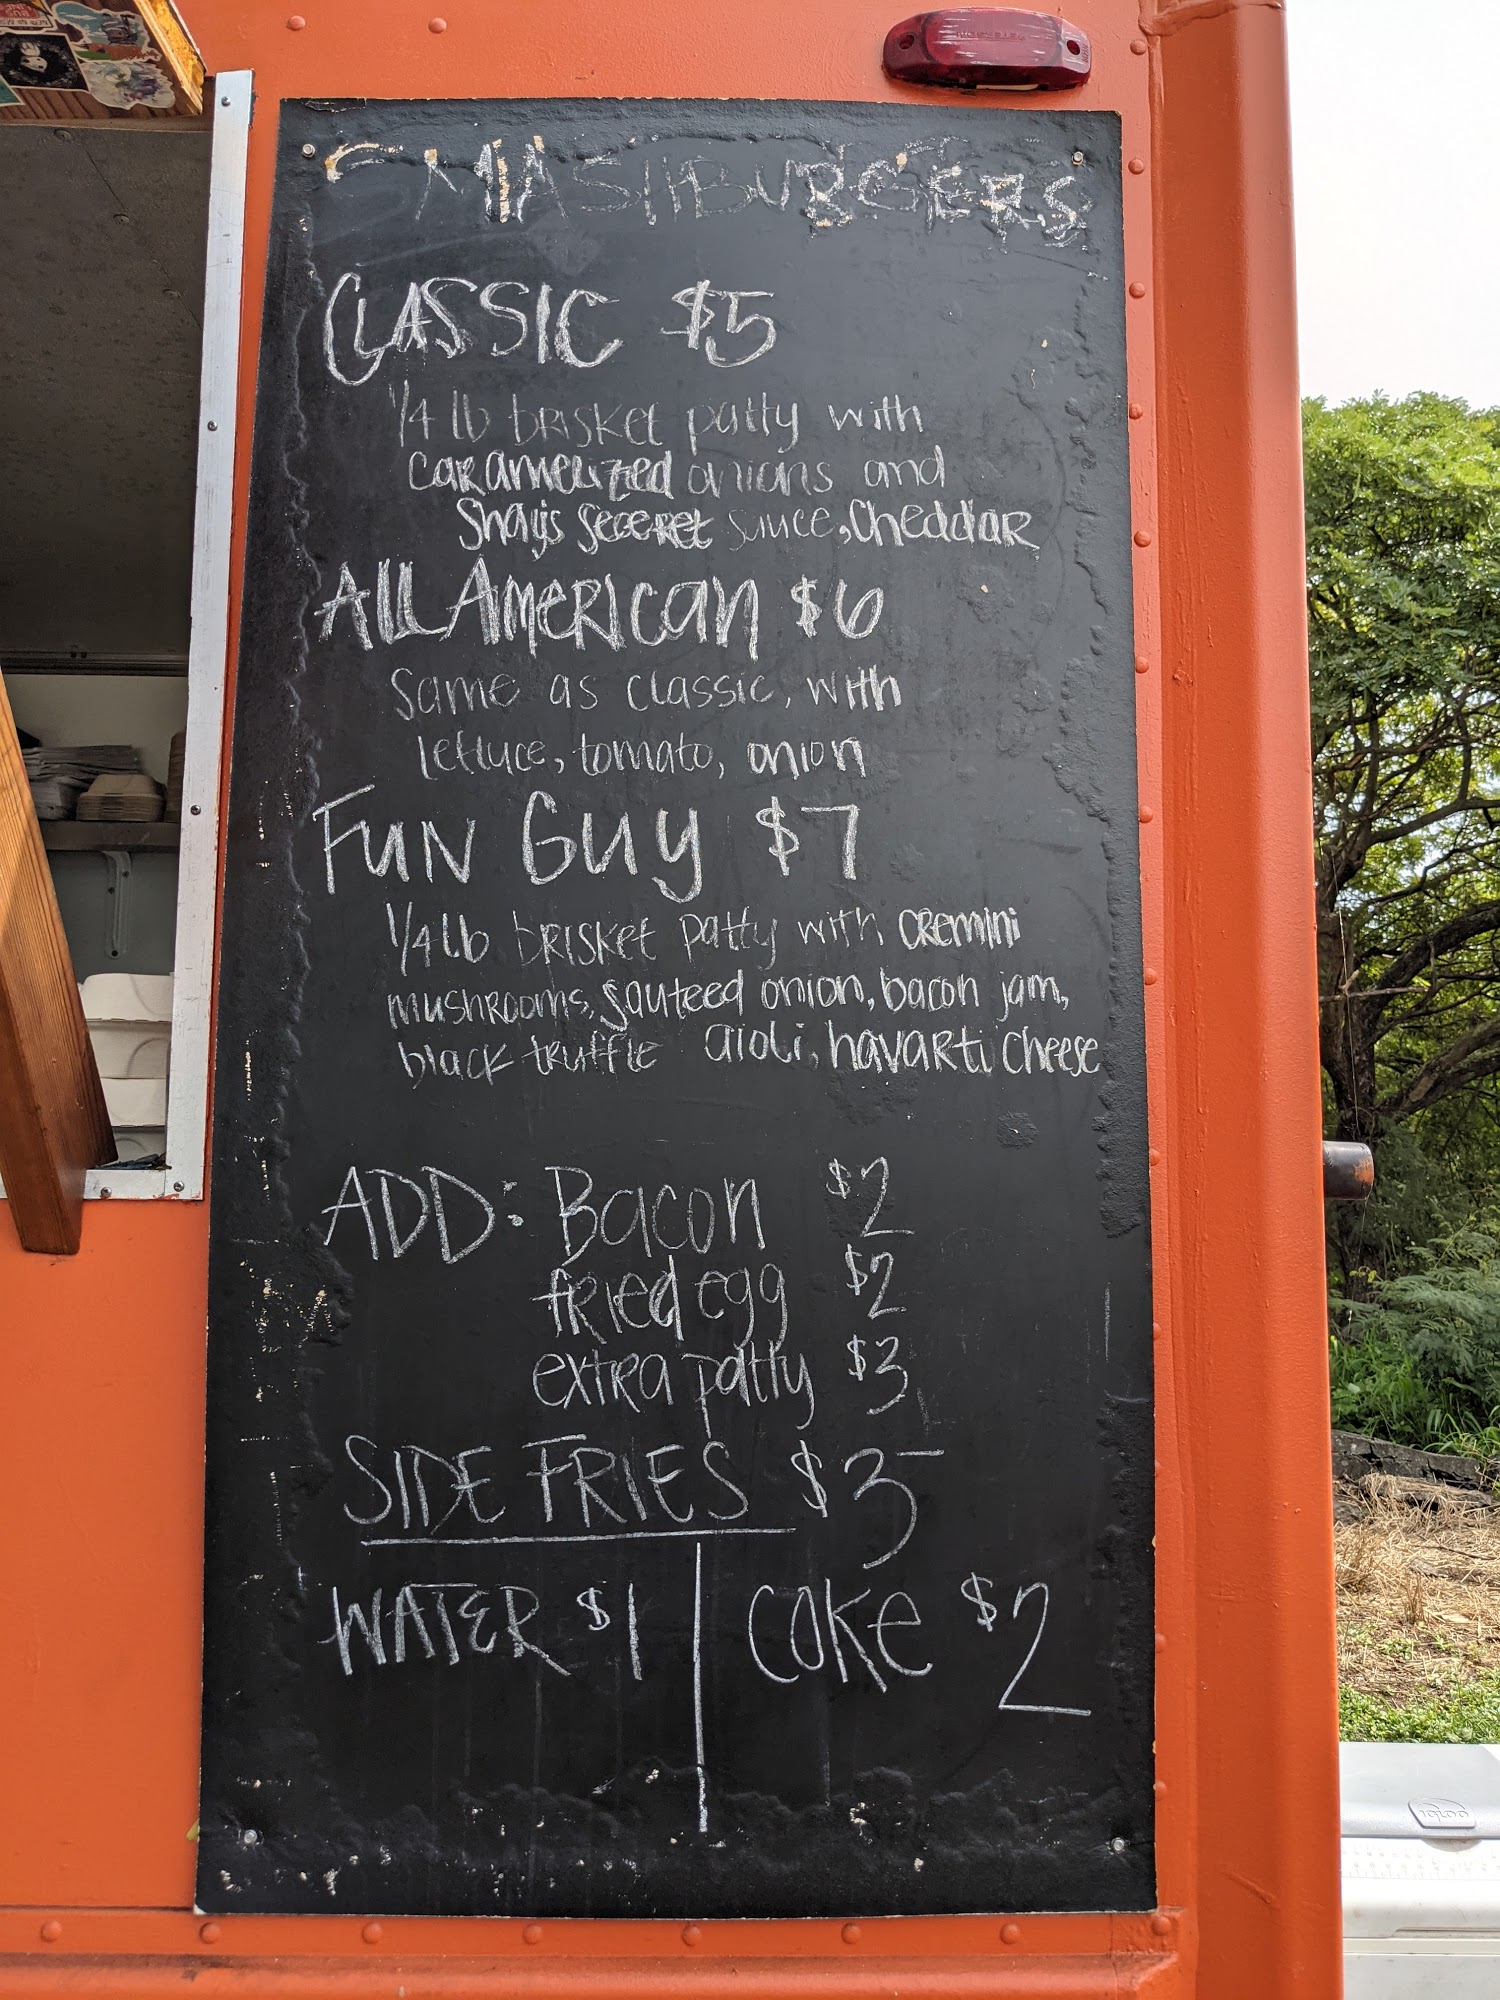 SMASHBURGERS
CLASSIC $5
1/4 lb brisket patty with
caramelized onions and
Shay's seceret sauce, cheddar
All American $6
Same as classic, with
lettuce, tomato, onion
Fun Guy $7
1/4 lb brisket patty with cremini
mushrooms, sauteed onion, bacon jam,
black truffle aioli, havarti cheese
ADD: Bacon $2
fried egg $2
extra patty $3
SIDE FRIES $3
WATER $1 | COKE $2
igloo